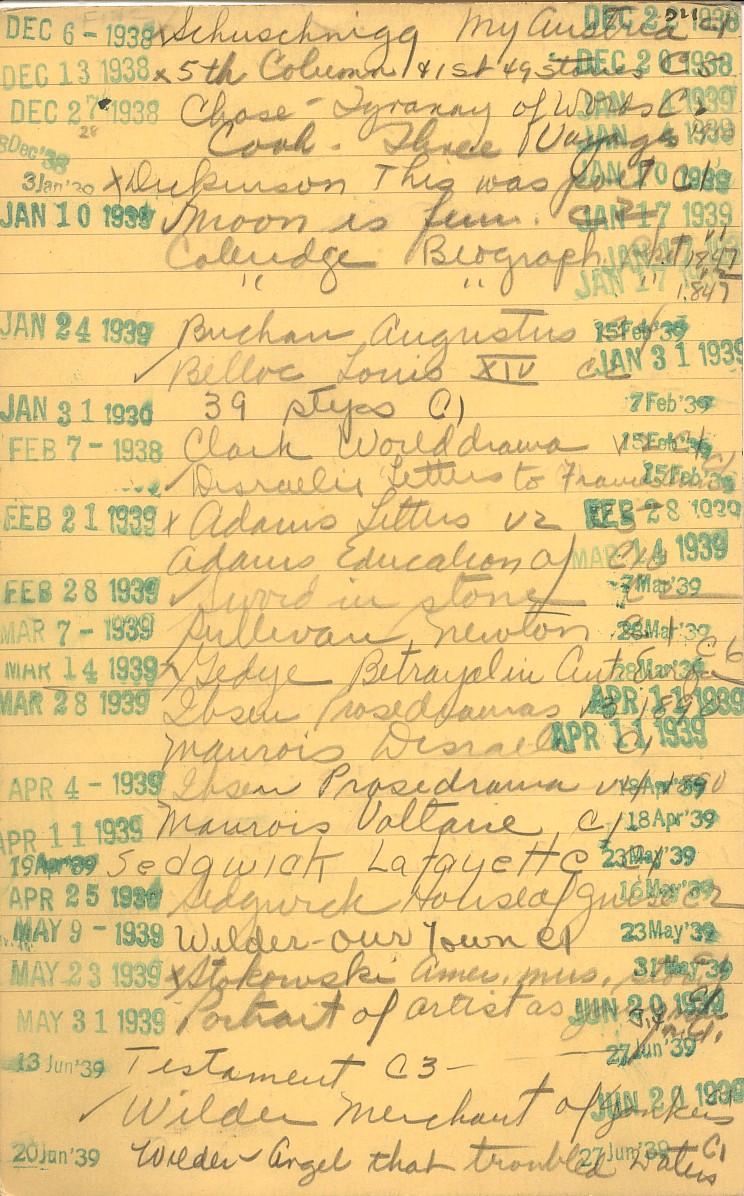 DEC 6 - 1938 x Schuschnigg My Austria C1 DEC 2 1938
DEC 13 1938 x 5th Column & 1st 49 stories C5 DEC 20 1938
DEC 27 1938 Chase - Tyranny of Words C. 1939
28 Cook. Three Voyages JAN 4 1939
Dec '38
3 Jan '39 x Dickinson This was poet C1 JAN 10 1939
JAN 10 1939 Moon is feur. C2 JAN 17 1939
Coleridge Biograph. Lit 1847 JAN 17
" " " 1847 JAN 17
JAN 24 1939 Buchan Augustus 15 Feb '39
✓ Belloc Louis XIV C2 JAN 31 1939
JAN 31 1939 39 steps C1 7 Feb '39
FEB 7 - 1938 Clark World drama 15 Feb '39
✓ Disraeli Letters to Frances 15 Feb '39
FEB 21 1939 x Adams Letters V2 FEB 28 1939
Adams Education of MAR 14 1939
FEB 28 1939 ✓ Sword in stone C2 7 Mar '39
MAR 7 - 1939 Sullivan, Newton C1 28 Mar '39
MAR 14 1939 x Gedye Betrayal in Cent Europe C6 28 Mar '39
MAR 28 1939 Ibsen Prosedramas V3 1890 APR 11 1939
Maurois Disraeli C1 APR 11 1939
APR 4 - 1939 Ibsen Prosedrama 1890 18 Apr '39
APR 11 1939 Maurois Voltaire C1 18 Apr '39
19 Apr '39 Sedgwick Lafayette C1 23 May '39
APR 25 1939 Sedgwick House of Guise C2 16 May '39
MAY 9 - 1939 Wilder - Our Town C1 23 May '39
MAY 23 1939 x Stokowski Amer. mus. 31 May '39
MAY 31 1939 Portrait of artist as young JUN 20 1939
13 Jun '39 Testament C3 - 27 Jun '39
✓ Wilder Merchant of Yonkers JUN 20 1939
20 Jun '39 Wilder - Angel that troubled waters C1 27 Jun '39